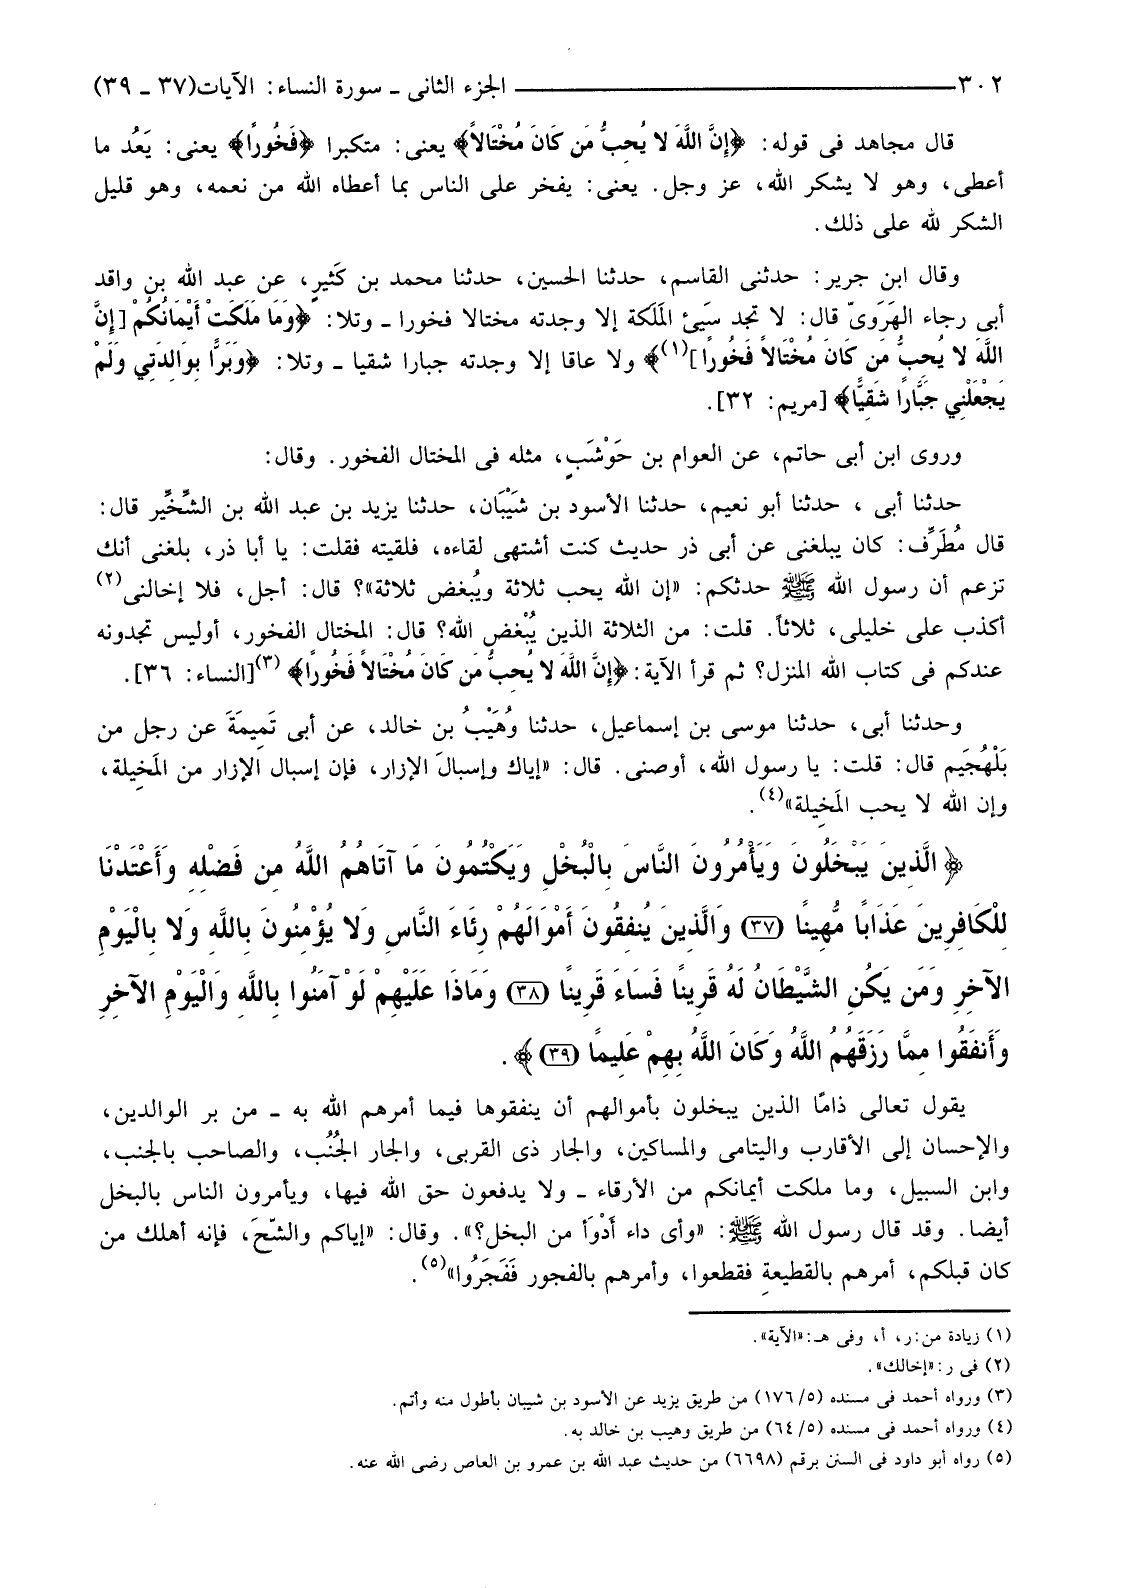 ٣٠٢ ــــــ الجزء الثانى ـ سورة النساء: الآيات(٣٧ ـ ٣٩)
قال مجاهد فى قوله: ﴿إِنَّ اللَّهَ لا يُحِبُّ مَن كَانَ مُخْتَالاً﴾ يعنى: متكبرا ﴿فَخُورًا﴾ يعنى: يَعُد ما
أعطى، وهو لا يشكر الله، عز وجل. يعنى: يفخر على الناس بما أعطاه الله من نعمه، وهو قليل
الشكر لله على ذلك.
وقال ابن جرير: حدثنى القاسم، حدثنا الحسين، حدثنا محمد بن كَثيرٍ، عن عبد الله بن واقد
أبى رجاء الهَرَوىّ قال: لا تجد سَيئ المَلَكة إلا وجدته مختالا فخورا ـ وتلا: ﴿وَمَا مَلَكَتْ أَيْمَانُكُمْ [إِنَّ
اللَّهَ لا يُحِبُّ مَن كَانَ مُخْتَالاً فَخُورًا](١)﴾ ولا عاقا إلا وجدته جبارا شقيا ـ وتلا: ﴿وَبَرًّا بِوَالِدَتِي وَلَمْ
يَجْعَلْنِي جَبَّارًا شَقِيًّا﴾ [مريم: ٣٢].
وروى ابن أبى حاتم، عن العوام بن حَوْشَبٍ، مثله فى المختال الفخور. وقال:
حدثنا أبى ، حدثنا أبو نعيم، حدثنا الأسود بن شَيْبَان، حدثنا يزيد بن عبد الله بن الشِّخِّير قال:
قال مُطَرِّف: كان يبلغنى عن أبى ذر حديث كنت أشتهى لقاءه، فلقيته فقلت: يا أبا ذر، بلغنى أنك
تزعم أن رسول الله ﷺ حدثكم: «إن الله يحب ثلاثة ويُبغض ثلاثة»؟ قال: أجل، فلا إخالنى(٢)
أكذب على خليلى، ثلاثاً. قلت: من الثلاثة الذين يُبْغض الله؟ قال: المختال الفخور، أوليس تجدونه
عندكم فى كتاب الله المنزل؟ ثم قرأ الآية: ﴿إِنَّ اللَّهَ لا يُحِبُّ مَن كَانَ مُخْتَالاً فَخُورًا﴾ (٣)[النساء: ٣٦].
وحدثنا أبى، حدثنا موسى بن إسماعيل، حدثنا وُهَيْبُ بن خالد، عن أبى تَمِيمَةَ عن رجل من
بَلْهُجَيم قال: قلت: يا رسول الله، أوصنى. قال: «إياك وإسبالَ الإزار، فإن إسبال الإزار من المَخِيلة،
وإن الله لا يحب المَخِيلة»(٤).
﴿الَّذِينَ يَبْخَلُونَ وَيَأْمُرُونَ النَّاسَ بِالْبُخْلِ وَيَكْتُمُونَ مَا آتَاهُمُ اللَّهُ مِن فَضْلِهِ وَأَعْتَدْنَا
لِلْكَافِرِينَ عَذَابًا مُّهِينًا (٣٧) وَالَّذِينَ يُنفِقُونَ أَمْوَالَهُمْ رِئَاءَ النَّاسِ وَلا يُؤْمِنُونَ بِاللَّهِ وَلا بِالْيَوْمِ
الآخِرِ وَمَن يَكُنِ الشَّيْطَانُ لَهُ قَرِينًا فَسَاءَ قَرِينًا (٣٨) وَمَاذَا عَلَيْهِمْ لَوْ آمَنُوا بِاللَّهِ وَالْيَوْمِ الآخِرِ
وَأَنفَقُوا مِمَّا رَزَقَهُمُ اللَّهُ وَكَانَ اللَّهُ بِهِمْ عَلِيمًا (٣٩)﴾.
يقول تعالى ذامًا الذين يبخلون بأموالهم أن ينفقوها فيما أمرهم الله به ـ من بر الوالدين،
والإحسان إلى الأقارب واليتامى والمساكين، والجار ذى القربى، والجار الجُنُب، والصاحب بالجنب،
وابن السبيل، وما ملكت أيمانكم من الأرقاء ـ ولا يدفعون حق الله فيها، ويأمرون الناس بالبخل
أيضا. وقد قال رسول الله ﷺ: «وأى داء أَدْوَأ من البخل؟». وقال: «إياكم والشّحَ، فإنه أهلك من
كان قبلكم، أمرهم بالقطيعةِ فقطعوا، وأمرهم بالفجور فَفَجَرُوا»(٥).
(١) زيادة من:ر، أ، وفى هـ:«الآية».
(٢) فى ر:«إخالك».
(٣) ورواه أحمد فى مسنده (١٧٦/٥) من طريق يزيد عن الأسود بن شيبان بأطول منه وأتم.
(٤) ورواه أحمد فى مسنده (٦٤/٥) من طريق وهيب بن خالد به.
(٥) رواه أبو داود فى السنن برقم (٦٦٩٨) من حديث عبد الله بن عمرو بن العاص رضى الله عنه.